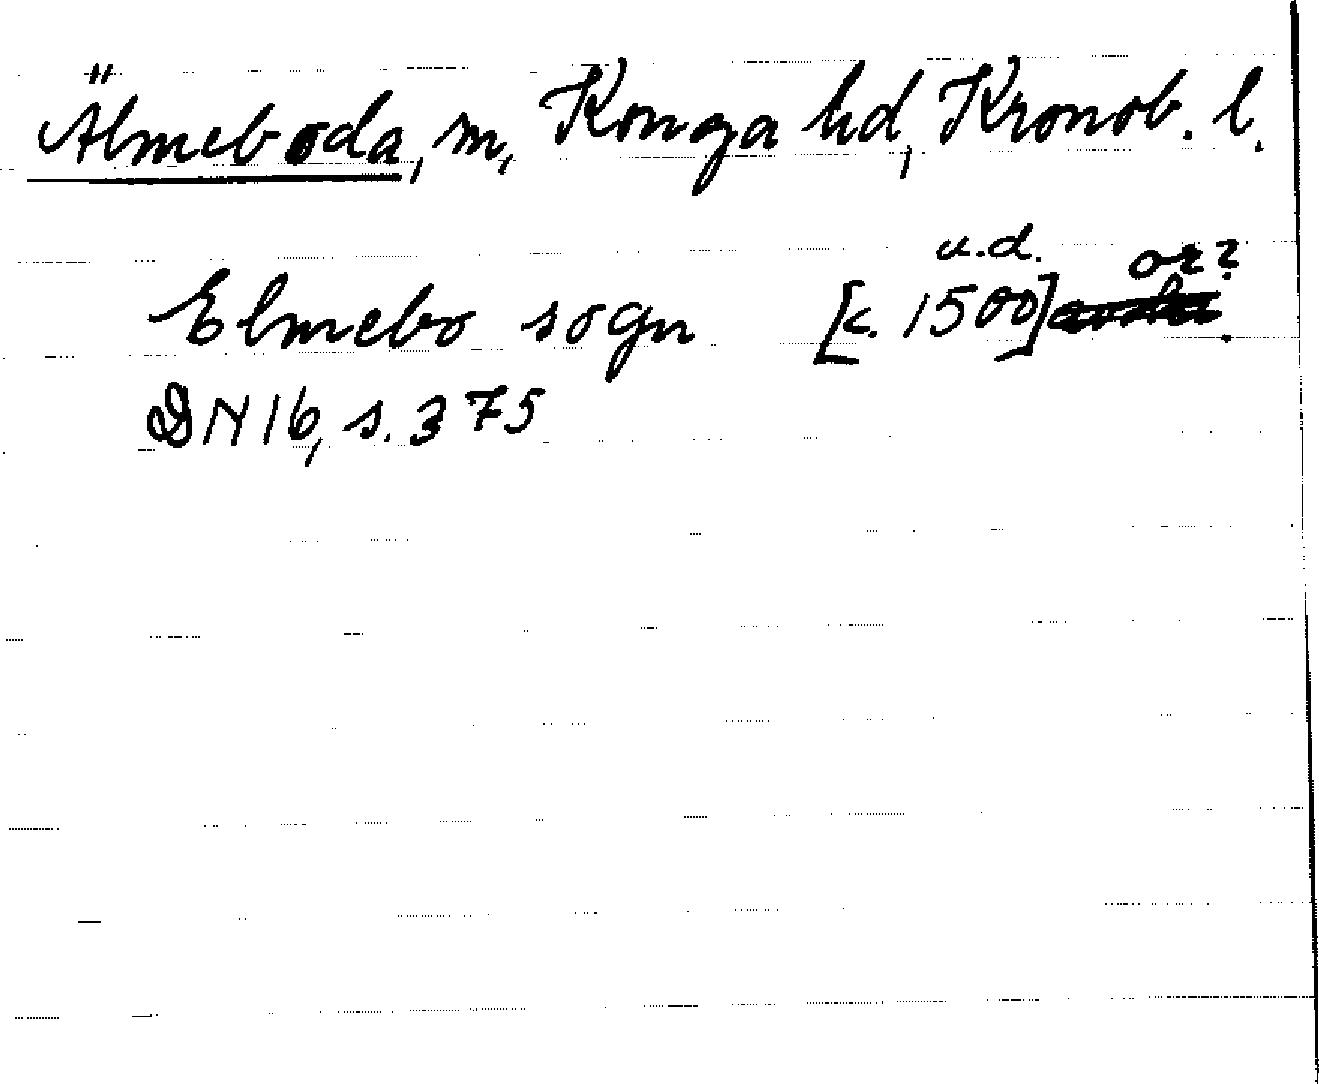 Älmeboda, sn, Konga hd, Kronob. l.
u.d. or?
Elmebo sogn [c. 1500]
DN 16, s. 375